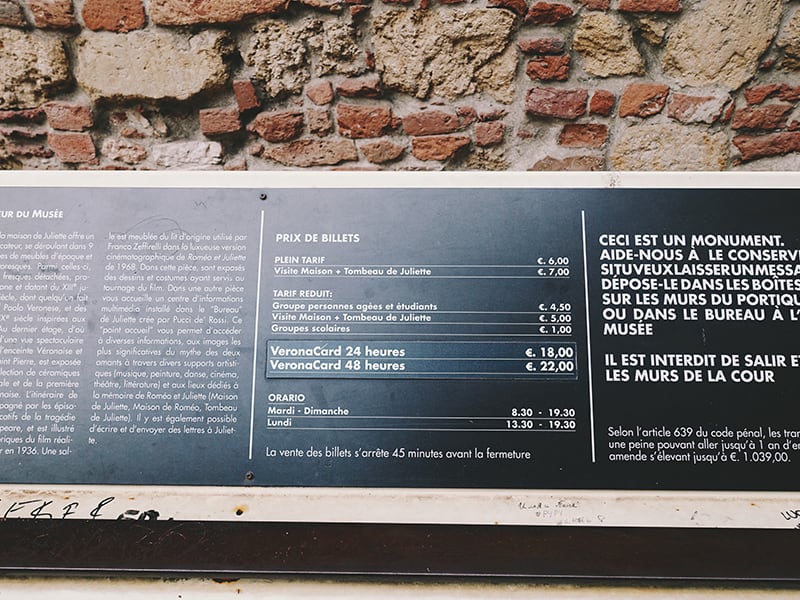 EUR DU MUSÉE
la maison de Juliette offre un
cateur, se déroulant dans 9
de meubles d'époque et
oresques. Parmi celles-ci,
fresques détachées, pro-
ane et datant du XIIIe
siècle, dont quelqu'un fait
Paolo Veronese, et des
XXe siècle inspirées aux
Au dernier étage, d'où
d'une vue spectaculaire
l'enceinte Véronaise et
Saint Pierre, est exposée
llection de céramiques
ale et de la première
naise. L'itinéraire de
pagné par les épiso-
catifs de la tragédie
peare, et est illustré
oriques du film réali-
r en 1936. Une sal-
le est meublée du lit d'origine utilisé par
Franco Zeffirelli dans la luxueuse version
cinématographique de Roméo et Juliette
de 1968. Dans cette pièce, sont exposés
des dessins et costumes ayant servis au
tournage du film. Dans une autre pièce
vous accueille un centre d'informations
multimédia installé dans la "Bureau"
de Juliette crée par Pucci de' Rossi. Ce
"point accueil" vous permet d'accéder
à diverses informations, aux images les
plus significatives du mythe des deux
amants à travers divers supports artisti-
ques (musique, peinture, danse, cinéma,
théâtre, littérature) et aux lieux dédiés à
la mémoire de Roméo et Juliette (Maison
de Juliette, Maison de Roméo, Tombeau
de Juliette). Il y est également possible
d'écrire et d'envoyer des lettres à Juliet-
te.
PRIX DE BILLETS
PLEIN TARIF €. 6,00
Visite Maison + Tombeau de Juliette €. 7,00
TARIF REDUIT:
Groupe personnes agées et étudiants €. 4,50
Visite Maison + Tombeau de Juliette €. 5,00
Groupes scolaires €. 1,00
VeronaCard 24 heures €. 18,00
VeronaCard 48 heures €. 22,00
ORARIO
Mardi - Dimanche 8.30 - 19.30
Lundi 13.30 - 19.30
La vente des billets s'arrête 45 minutes avant la fermeture
CECI EST UN MONUMENT.
AIDE-NOUS À LE CONSERVE
SI TU VEUX LAISSER UN MESSA
DÉPOSE-LE DANS LES BOÎTES
SUR LES MURS DU PORTIQU
OU DANS LE BUREAU À L'
MUSÉE
IL EST INTERDIT DE SALIR ET
LES MURS DE LA COUR
Selon l'article 639 du code pénal, les tran
une peine pouvant aller jusqu'à 1 an d'e
amende s'élevant jusqu'à €. 1.039,00.